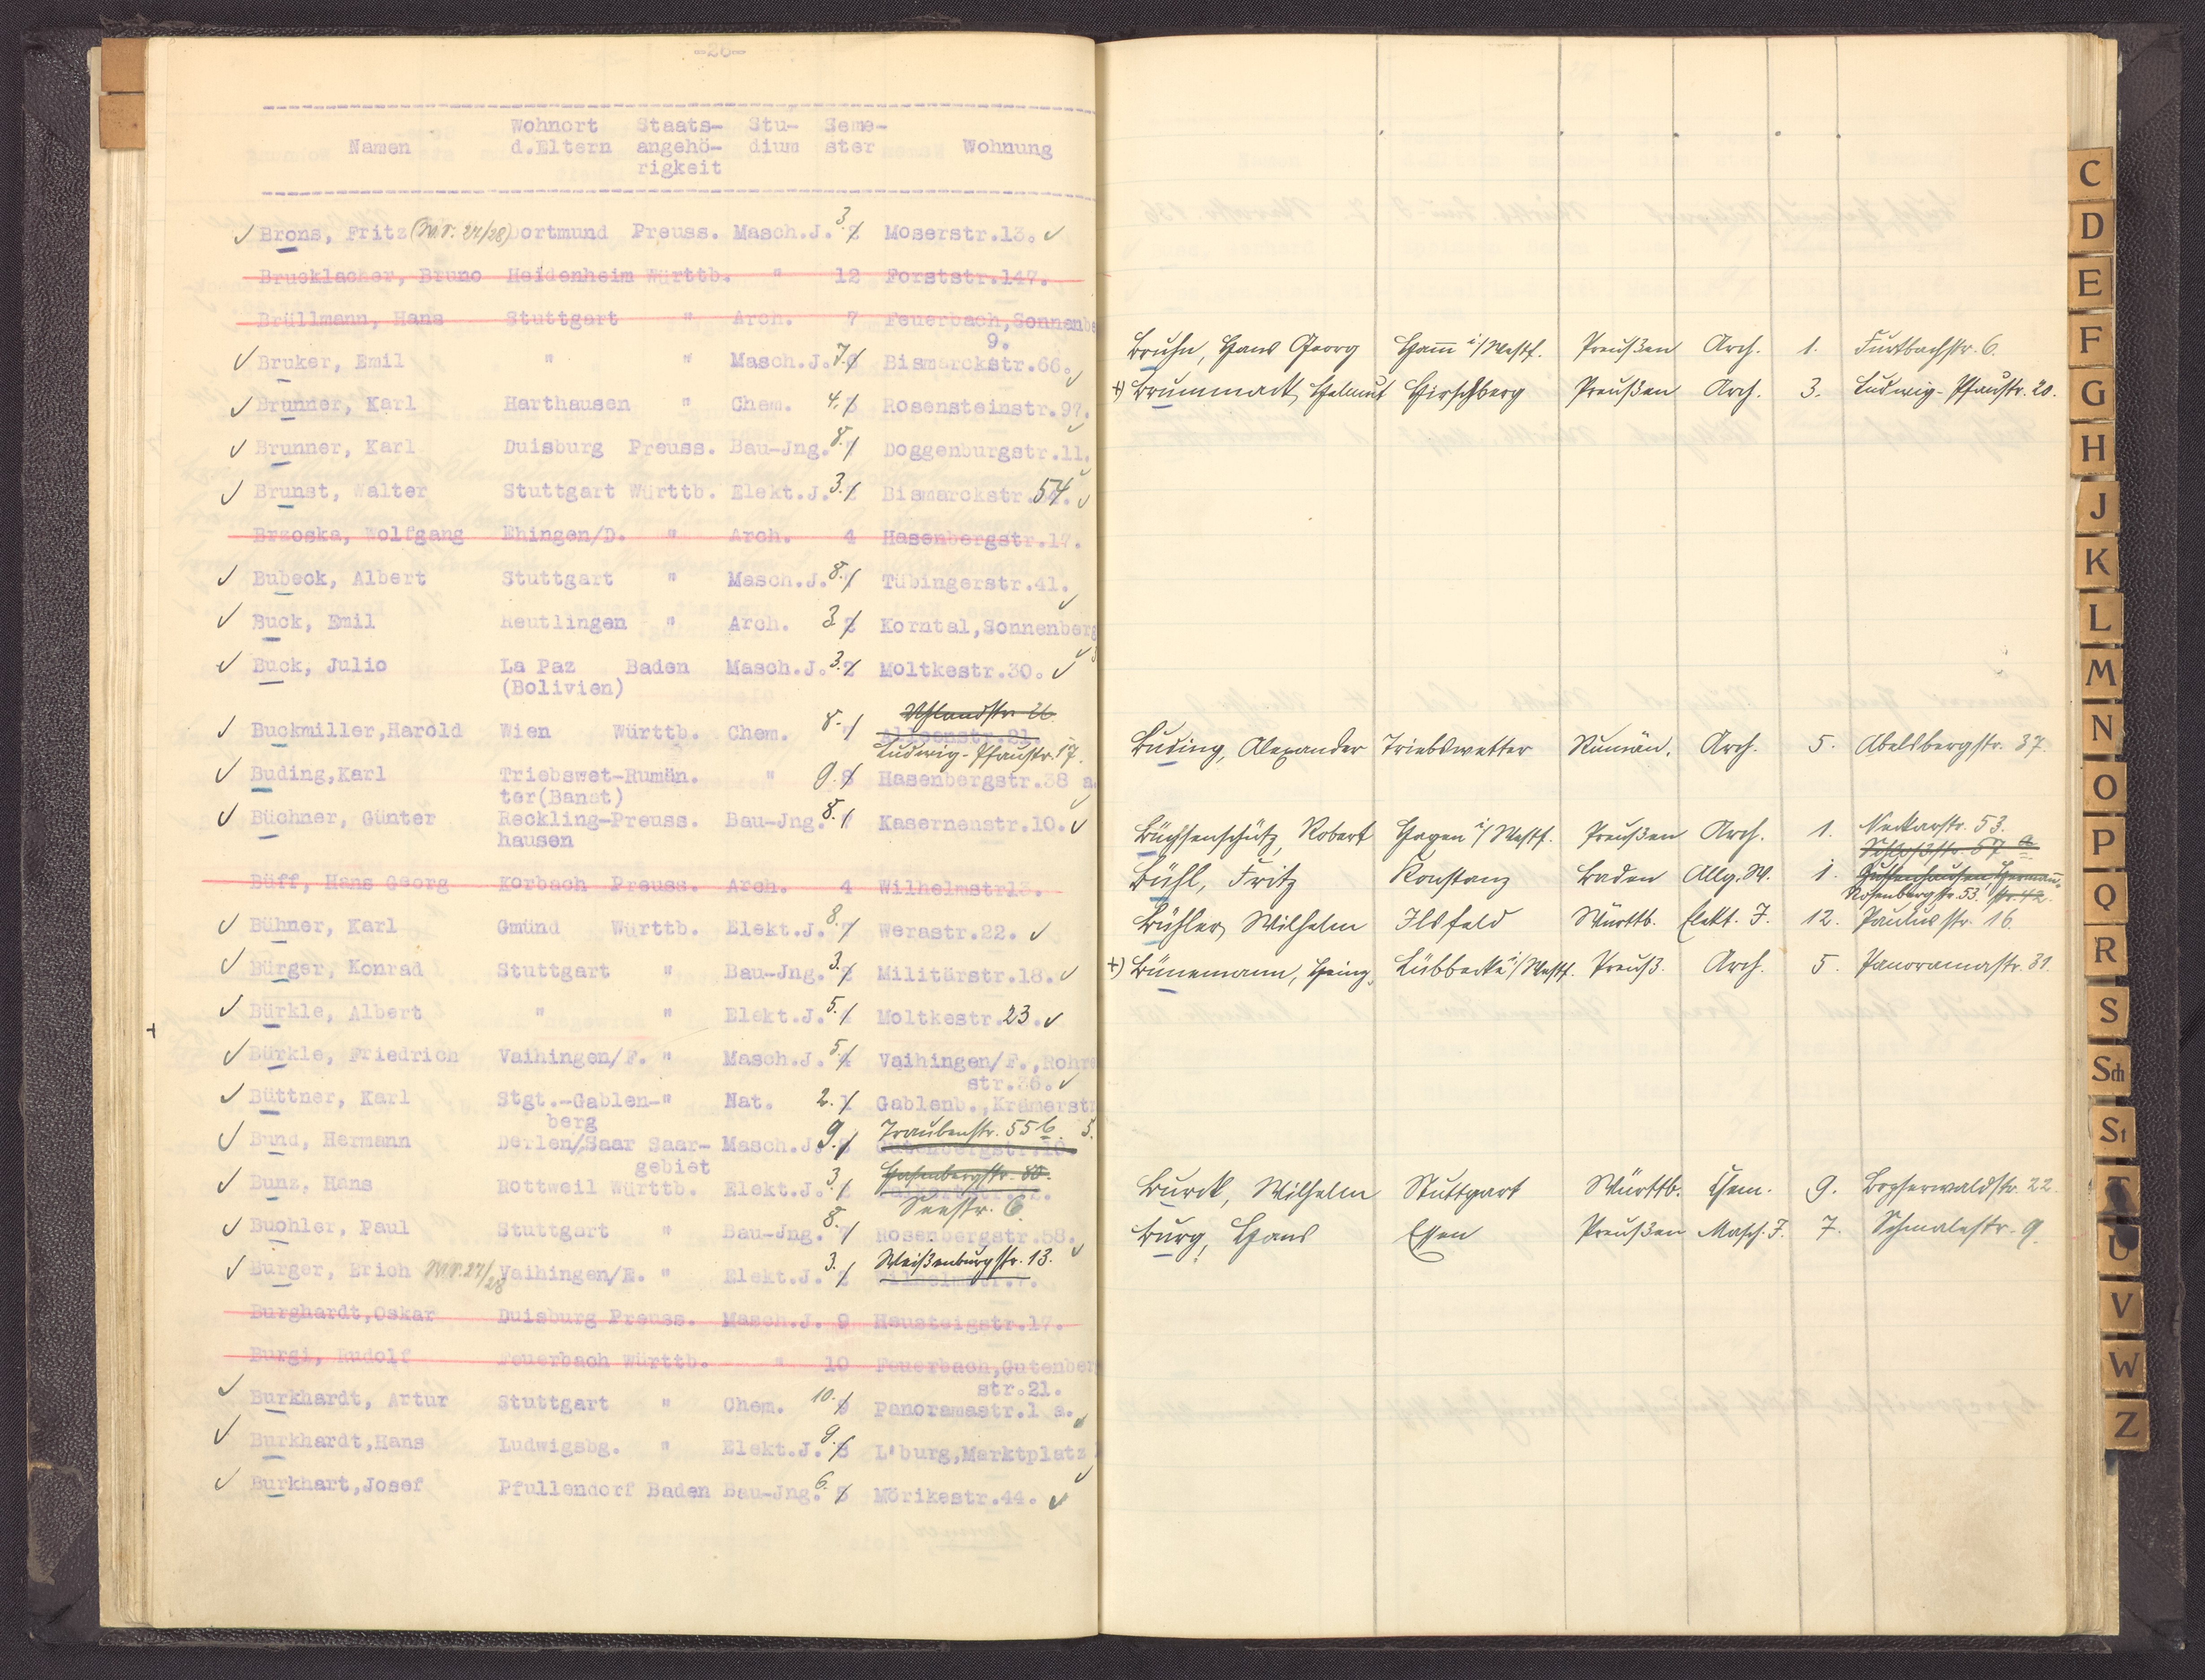 -26-
Namen Wohnort d.Eltern Staats-angehö-rigkeit Stu-dium Seme-ster Wohnung
Brons, Fritz (W.S. 27/28) Dortmund Preuss. Masch.J. 3. 2 Moserstr.13.
Brucklacher, Bruno Heidenheim Württb. " 12 Forststr.147.
Brüllmann, Hans Stuttgart " Arch. 7 Feuerbach,Sonnenbe
9.
Bruker, Emil " " Masch.J. 7. 6 Bismarckstr.66.
Brunner, Karl Harthausen " Chem. 4. 3 Rosensteinstr.97.
Brunner, Karl Duisburg Preuss. Bau-Jng. 8. Doggenburgstr.11.
Brunst, Walter Stuttgart Württb. Elekt.J. 3. Bismarckstr. 54.
Brzoska, Wolfgang Ehingen/D. " Arch. 4 Hasenbergstr.17.
Bubeck, Albert Stuttgart " Masch.J. 8. Tübingerstr.41.
Buck, Emil Reutlingen " Arch. 3. 2 Korntal,Sonnenberg
Buck, Julio La Paz Baden Masch.J. 3. 2 Moltkestr.30.
(Bolivien)
Uhlandstr. 26
Buckmiller,Harold Wien Württb. Chem. 8.
Ludwig-Pfaustr. 17.
Buding,Karl Triebswet-Rumän. " 9. 8 Hasenbergstr.38 a.
ter(Banat)
Büchner, Günter Reckling-Preuss. Bau-Jng. 8. Kasernenstr.10.
hausen
Büff, Hans Georg Korbach Preuss. Arch. 4 Wilhelmstr13.
Bühner, Karl Gmünd Württb. Elekt.J. 8. 7 Werastr.22.
Bürger, Konrad Stuttgart " Bau-Jng. 3. 2 Militärstr.18.
Bürkle, Albert " " Elekt.J. 5. Moltkestr. 23.
Bürkle, Friedrich Vaihingen/F. " Masch.J. 5. 4 Vaihingen/F.,Rohre
str.36.
Büttner, Karl Stgt.-Gablen-" Nat. 2. 1 Gablenb.,Krämerstr
berg 5.
Traubenstr. 55 b
Bund, Hermann Derlen/Saar Saar- Masch.J. 9. Gutenbergstr.10.
gebiet
Hasenbergstr. 80.
Bunz, Hans Rottweil Württb. Elekt.J. 3.
Seestr. 6.
Buohler, Paul Stuttgart " Bau-Jng. 8. 7 Rosenbergstr.58.
Weißenburgstr. 13.
Burger, Erich W.S.27/28 Vaihingen/E. " Elekt.J. 3. 2
Burghardt,Oskar Duisburg Preuss. Masch.J. 9 Heusteigstr.17.
Burgi, Rudolf Feuerbach Württb. " 10 Feuerbach,Gutenberg
str.21.
Burkhardt, Artur Stuttgart " Chem. 10. 9 Panoramastr.1 a.
Burkhardt,Hans Ludwigsbg. " Elekt.J. 9. 8 L'burg,Marktplatz
Burkhart,Josef Pfullendorf Baden Bau-Jng. 6. 5 Mörikestr.44.
Bruhn, Hans Georg Hamm i/Westf. Preußen Arch. 1. Furtbachstr. 6.
+) Brummack, Helmut Hirschberg Preußen Arch. 3. Ludwig-Pfaustr. 20.
Buding, Alexander Triebswetter Rumän. Arch. 5. Abelsbergstr. 37.
Büchsenschütz, Robert Hagen i/Westf. Preußen Arch. 1. Neckarstr. 53.
Schloßstr. 57 a
Bühl, Fritz Konstanz Baden Allg.W. 1. Zuffenhausen Hermann-
Rosenbergstr. 53. str. 42.
Bühler, Wilhelm Ilsfeld Württb. Elekt. J. 12. Paulusstr. 16.
+) Bünemann, Heinz Lübbecke i/Westf. Preuß. Arch. 5. Panoramastr. 31.
Burck, Wilhelm Stuttgart Württb. Chem. 9. Bopserwaldstr. 22.
Burg, Hans Essen Preußen Masch. J. 7. Schmalestr. 9.
C
D
E
F
G
H
J
K
L
M
N
O
P
Q
R
S
Sch
St
T
U
V
W
Z